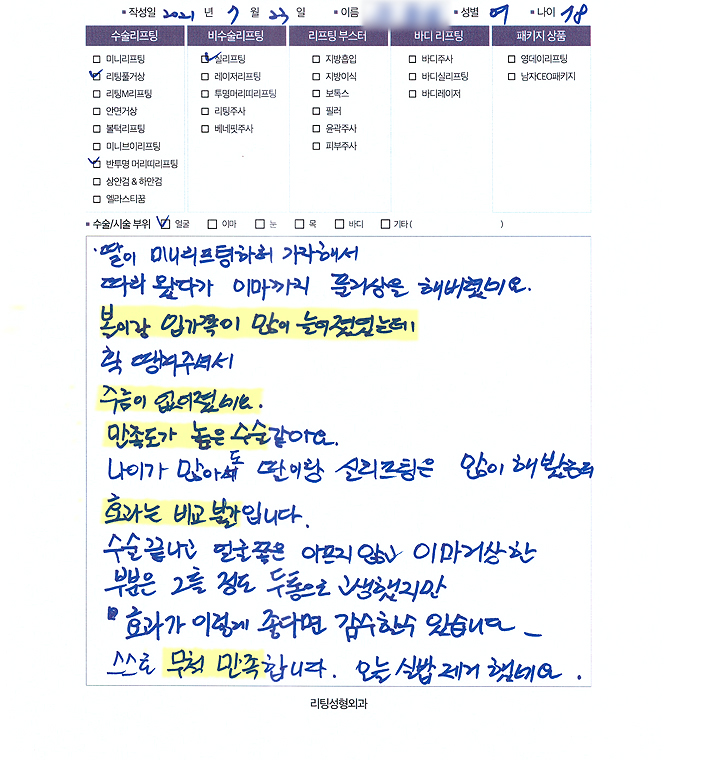 작성일 2021 년 7 월 23 일 이름 성별 여 나이 78
수술리프팅 비수술리프팅 리프팅 부스터 바디 리프팅 패키지 상품
미니리프팅 실리프팅 지방흡입 바디주사 영데이리프팅
리팅풀거상 레이저리프팅 지방이식 바디실리프팅 남자CEO패키지
리팅M리프팅 투명머리띠리프팅 보톡스 바디레이저
안면거상 리팅주사 필러
볼턱리프팅 베네핏주사 윤곽주사
미니브이리프팅 피부주사
반투명 머리띠리프팅
상안검 & 하안검
엘라스티꿈
수술/시술 부위 얼굴 이마 눈 목 바디 기타( )
딸이 미니리프팅하러 가자해서
따라 왔다가 이마까지 풀거상을 해버렸네요.
볼이랑 입가쪽이 많이 늘어졌었는데
확 땡겨주셔서
주름이 없어졌네요.
만족도가 높은 수술같아요.
나이가 많아서도 딸이랑 실리프팅은 많이 해봤는데
효과는 비교불가입니다.
수술끝나고 얼굴쪽은 아프지않고 이마거상한
부분은 2틀 정도 두통으로 고생했지만
효과가 이렇게 좋다면 감수할수 있습니다
스스로 무척 만족합니다. 오늘 실밥제거 했네요.
리팅성형외과